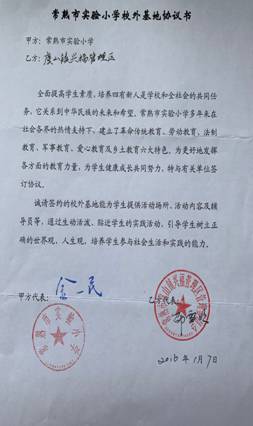 常熟市实验小学校外基地协议书
甲方:常熟市实验小学
乙方:虞山镇兴福管理区
全面提高学生素质,培养四有新人是学校和全社会的共同任
务,它关系到中华民族的未来和希望。常熟市实验小学多年来在
社会各界的热情支持下,建立了革命传统教育、劳动教育、法制
教育、军事教育、爱心教育及乡土教育六大特色,为更好地发挥
各方面的教育力量,为学生健康成长共同努力,特与有关单位签
订协议。
诚请签约的校外基地能为学生提供活动场所、活动内容及辅
导员等,通过生动活泼、贴近学生的实践活动,引导学生树立正
确的世界观、人生观,培养学生参与社会生活和实践的能力。
甲方代表: 金一民
乙方代表:
常熟市实验小学
2016年1月7日